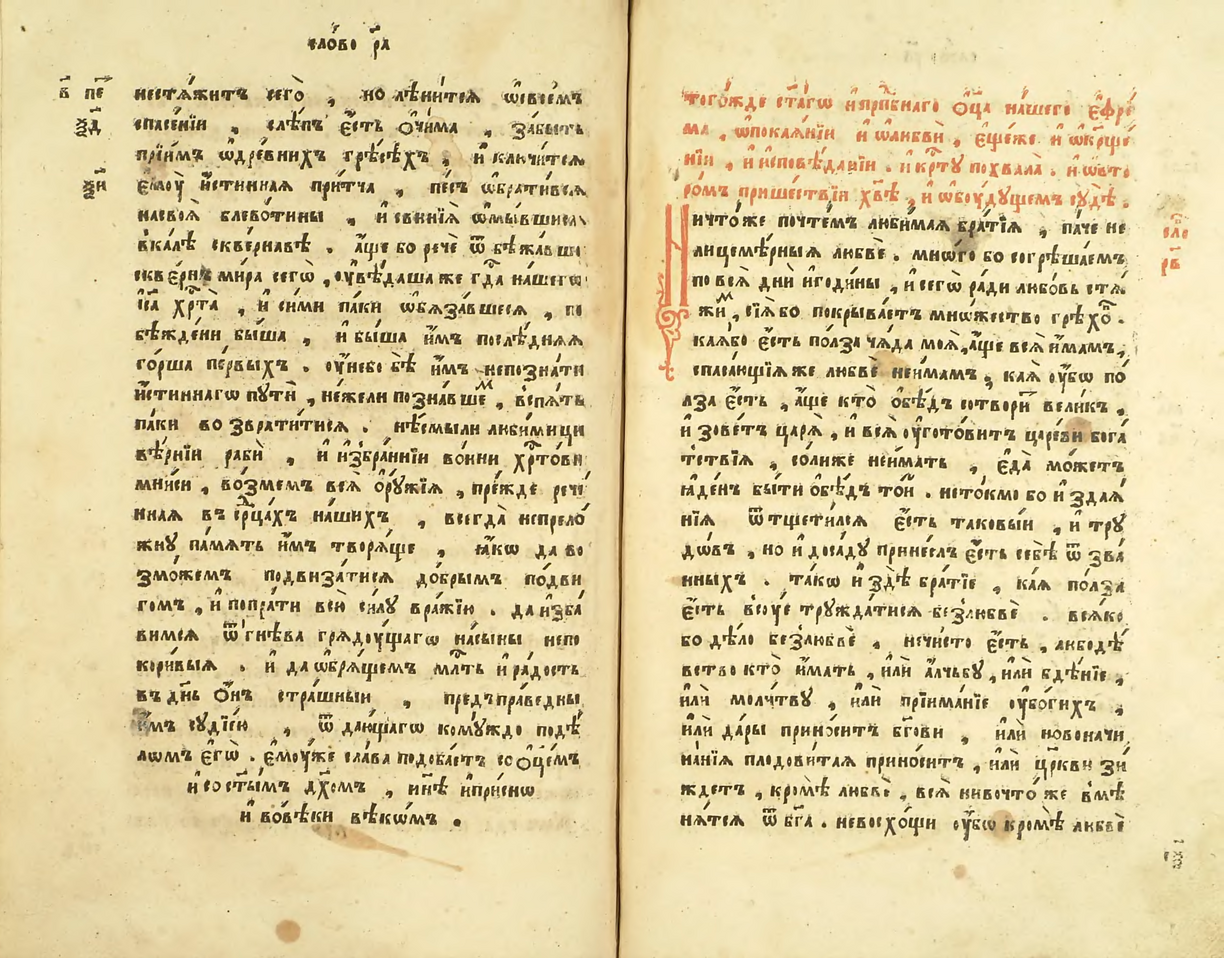 сло́во р҃а
в҃ пе
зд҃
зи҃
нестѧ́житъ сего̀ , но лѣ́нитсѧ ѡ҆свое́мъ
спасе́нїи , слѣ́пъ є҆́сть ѻ҆чи́ма , забы́ть
прїи́мъ ѿдре́внихъ грѣсѣ́хъ , и҆ клю́читсѧ
є҆моу̀ и҆́стиннаѧ при́тча , пе́съ ѡ҆брати́всѧ
насвоѧ̀ блево́тины , и҆ свинїѧ̀ ѡ҆мы́вшисѧ
вка́лѣ скве́рнавѣ . а҆́ще бо речѐ ѿ бѣжа́вше
скве́рнъ ми́ра сегѡ̀ , оу҆вѣ́дѣша же гд҃а на́шегѡ
і҆с҃а хр҃та̀ , и҆ си́ми па́ки ѡ҆бѧза́вшесѧ , по
бѣжде́ни бы́ша , и҆ бы́ша и҆̀мъ послѣ́днѧѧ
го́рша пе́рвыхъ . оу҆́небо бѣ̀ и҆̀мъ непозна́ти
и҆́стиннагѡ путѝ , не́жели позна́вшем , вспѧ́ть
па́ки во зврати́тисѧ . нѣ́смыли люби́мици
вѣ́рнїи рабѝ , и҆ и҆збра́ннїи во́ини хр҃то́ви
мни́си , во́змемъ всѧ̀ ѻ҆рꙋ́жїѧ , пре́жде рече́
ннаѧ въ ср҃цахъ на́шихъ , всегда̀ непрело́
жнꙋ па́мѧть и҆̀мъ творѧ́ще , ꙗ҆́кѡ да во
змо́жемъ подвиза́тисѧ до́брымъ по́дви
гомъ , и҆ попра́ти всю̀ си́лꙋ вра́жїю . да и҆зба́
вимсѧ ѿ гнѣ́ва грѧдꙋ́щагѡ на́сыны непо
кори́выѧ . и҆ да ѡ҆брѧ́щемъ мл҃ть и҆ ра́дость
въ дн҃ь ѻ҆́нъ стра́шныи , предъпра́ведны
и҆́мъ сꙋдїе́ю , ѿ даю́щагѡ комꙋ́ждо подѣ́
лѡмъ є҆гѡ̀ . є҆моу́же сла́ва подоба́етъ со ѻ҆ц҃емъ
и҆ со ст҃ы́мъ дх҃омъ , и҆ нн҃ѣ и҆ при́снѡ
и҆ во́вѣки вѣкѡ́мъ .
того́жде ст҃а́гѡ и҆прп҃бнаго ѻ҆ц҃а на́шего є҆фре́
ма , ѡ҆покаѧ́нїи и҆ ѡ҆любвѝ , є҆ще́же и҆ ѡ҆кр҃ще
нїи , и҆ и҆сповѣ́данїи . и҆ кр҃тꙋ похвала̀ . и҆ ѡ҆вто
ро́мъ прише́ствїи хв҃ѣ , и҆ ѡ҆бꙋ́дꙋщемъ сꙋдѣ̀ .
сло
р҃в
Ничто́же почте́мъ люби́маѧ бра́тїѧ , па́че не
лицемѣ́рныѧ любвѐ . мнѡ́го бо согрѣша́емъ
по всѧ̀ днѝ и҆годи́ны , и҆ сегѡ̀ ра́ди любо́вь стѧ
жим , сїѧ̀ бо покрыва́етъ мнѡ́жество грѣхо́в .
ка́ѧбо є҆́сть по́лза ча́да моѧ̀ , а҆́ще всѧ̀ и҆́мамъ ,
спаса́ющїѧ же любвѐ неи́мамъ , ка́ѧ оу҆́бѡ по́
лза є҆́сть , а҆́ще кто̀ ѻ҆бѣ́дъ сотвори́т вели́къ ,
и҆ зове́тъ царѧ̀ , и҆ всѧ̀ оу҆гото́витъ царе́ви бога́
тствїѧ , со́лиже неи́мать , є҆да̀ мо́жетъ
ꙗ҆де́нъ бы́ти ѻ҆бѣ́дъ то́и . нето́кмо бо и҆ зда́ѧ
нїѧ ѿтщети́лсѧ є҆́сть таковы́и , и҆ трꙋ
дѡ́въ , но и҆ доса́дꙋ принесѐлъ є҆́сть себѣ̀ ѿ зва́
нныхъ . та́кѡ и҆ здѣ̀ бра́тїе , ка́ѧ по́лза
є҆́сть всоуе трꙋжда́тисѧ безлюбвѐ . всѧ́ко
бо дѣ́ло безлюбвѐ , нечи́сто є҆́сть , любодѣ́
вство кто̀ и҆́мать , и҆лѝ а҆лчьбꙋ̀ , и҆лѝ бдѣ́нїе ,
и҆лѝ моли́твꙋ , и҆лѝ прїима́нїе оу҆бо́гихъ ,
и҆лѝ да́ры прино́ситъ бг҃ови , и҆лѝ новоначи
на́нїѧ плодови́таѧ прино́ситъ , и҆лѝ цр҃кви зи́
ждетъ , кро́мѣ любвѐ , всѧ̀ нивочто́ же вмѣ
нѧ́тсѧ ѿ бг҃а . невосхо́щи оу҆́бѡ кро́мѣ любвѐ